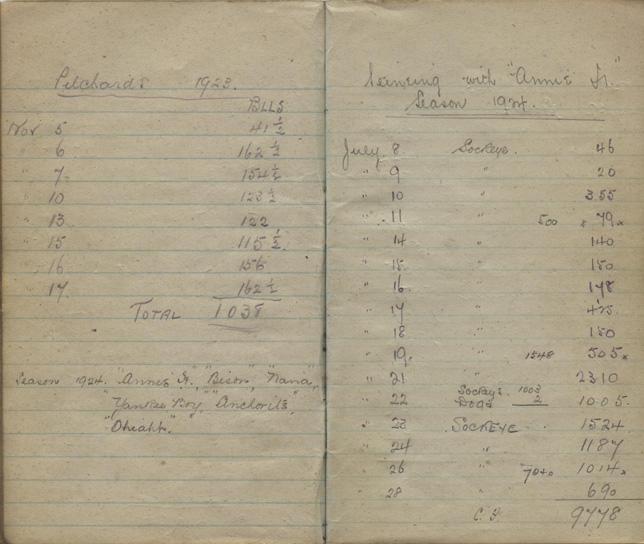 Pilchards 1923.
BLLS
Nov 5 41 ½
" 6 162 ½
" 7 154 ½
" 10 123 ½
" 13 122
" 15 115 ½
" 16 156
" 17 162 ½
TOTAL 1038
Season 1924. "Annie Jr", "Bison", "Nana",
"Yankee Boy,"
Seineing with "Annie Jr."
Season 1924.
July 8 Sockeye. 46
" 9 " 20
" 10 " 355
" 11 " 500 x 79 x
" 14 " 140
" 15 " 150
" 16 " 178
" 17 " 425
" 18 " 150
" 19 " 1543 505 x
" 21 " 2310
" 22 Sockeye 1003
Dogs 2 1005.
" 23 SOCKEYE 1524
" 24 " 1187
" 26 " 1014 x
" 28 " 690
9778